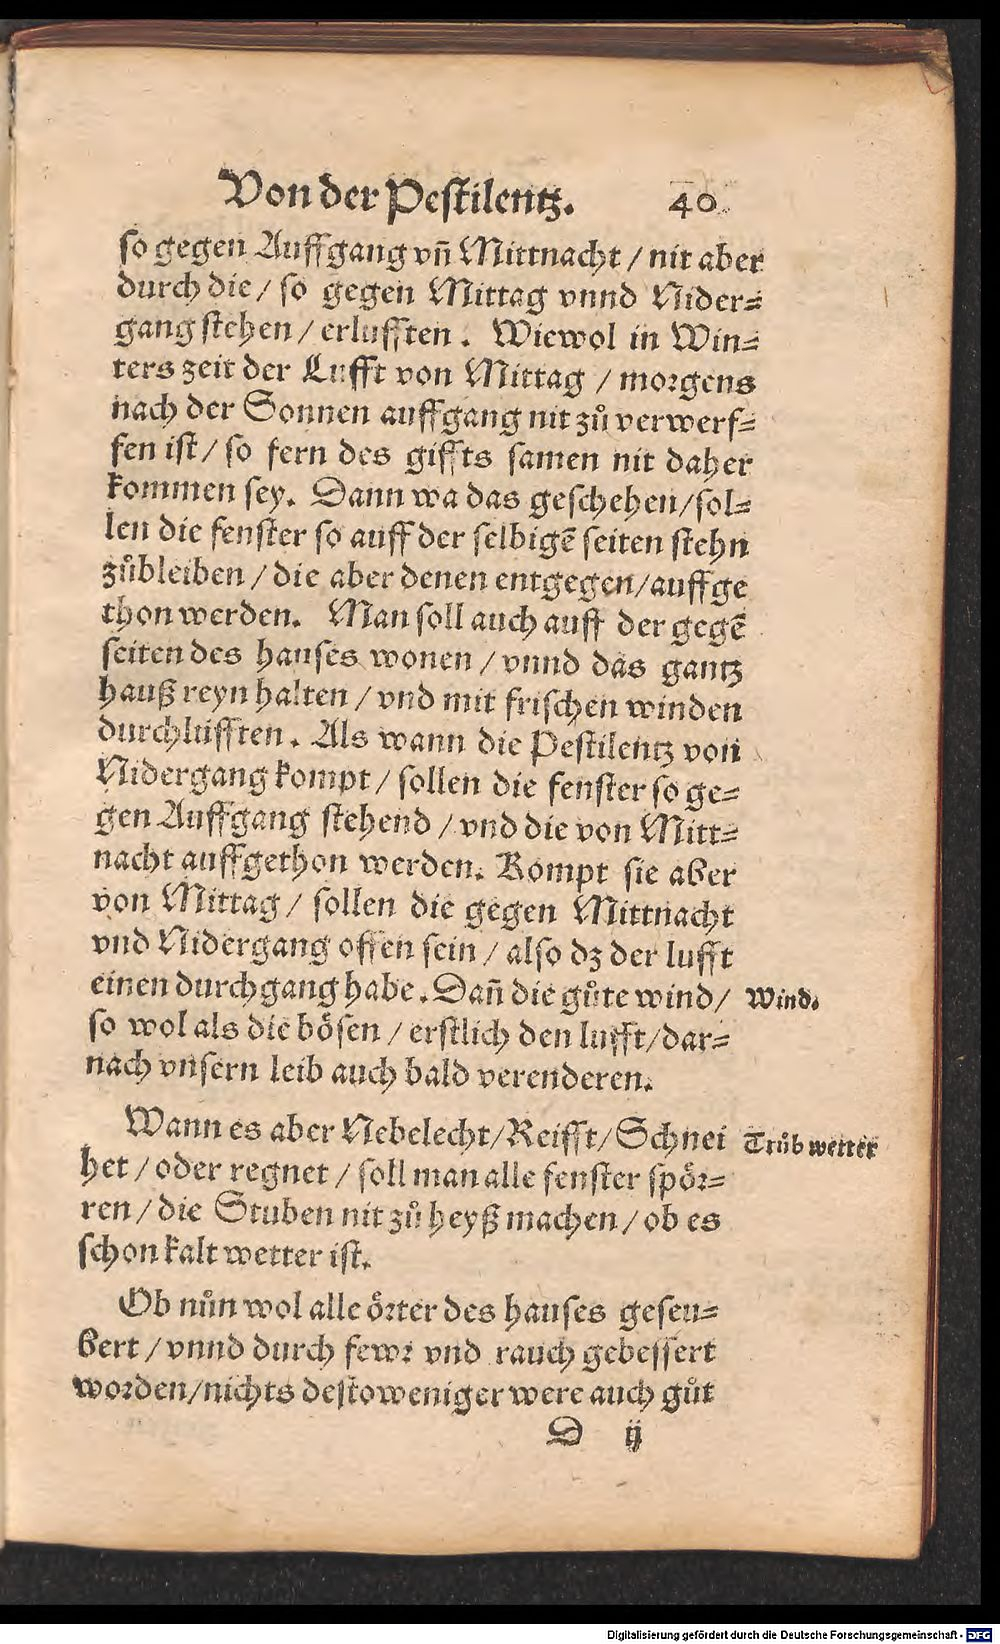 Von der Pestilentz. 40.
so gegen Auffgang vñ Mittnacht / nit aber
durch die / so gegen Mittag vnnd Nider=
gang stehen / erlufften. Wiewol in Win=
ters zeit der Lufft von Mittag / morgens
nach der Sonnen auffgang nit zů verwerf=
fen ist / so fern des giffts samen nit daher
kommen sey. Dann wa das geschehen / sol=
len die fenster so auff der selbigē seiten stehn
zůbleiben / die aber denen entgegen / auffge
thon werden. Man soll auch auff der gegē
seiten des hauses wonen / vnnd das gantz
hauß reyn halten / vnd mit frischen winden
durchlüfften. Als wann die Pestilentz von
Nidergang kompt / sollen die fenster so ge=
gen Auffgang stehend / vnd die von Mitt=
nacht auffgethon werden. Kompt sie aber
von Mittag / sollen die gegen Mittnacht
vnd Nidergang offen sein / also dz der lufft
einen durchgang habe. Dañ die gůte wind / Wind.
so wol als die bösen / erstlich den lufft / dar=
nach vnsern leib auch bald verenderen.
Wann es aber Nebelecht / Reifft / Schnei Trůb wetter
het / oder regnet / soll man alle fenster spör=
ren / die Stuben nit zů heyß machen / ob es
schon kalt wetter ist.
Ob nůn wol alle örter des hauses geseu=
bert / vnnd durch fewr vnd rauch gebessert
worden / nichts destoweniger were auch gůt
D ij
Digitalisierung gefördert durch die Deutsche Forschungsgemeinschaft - DFG